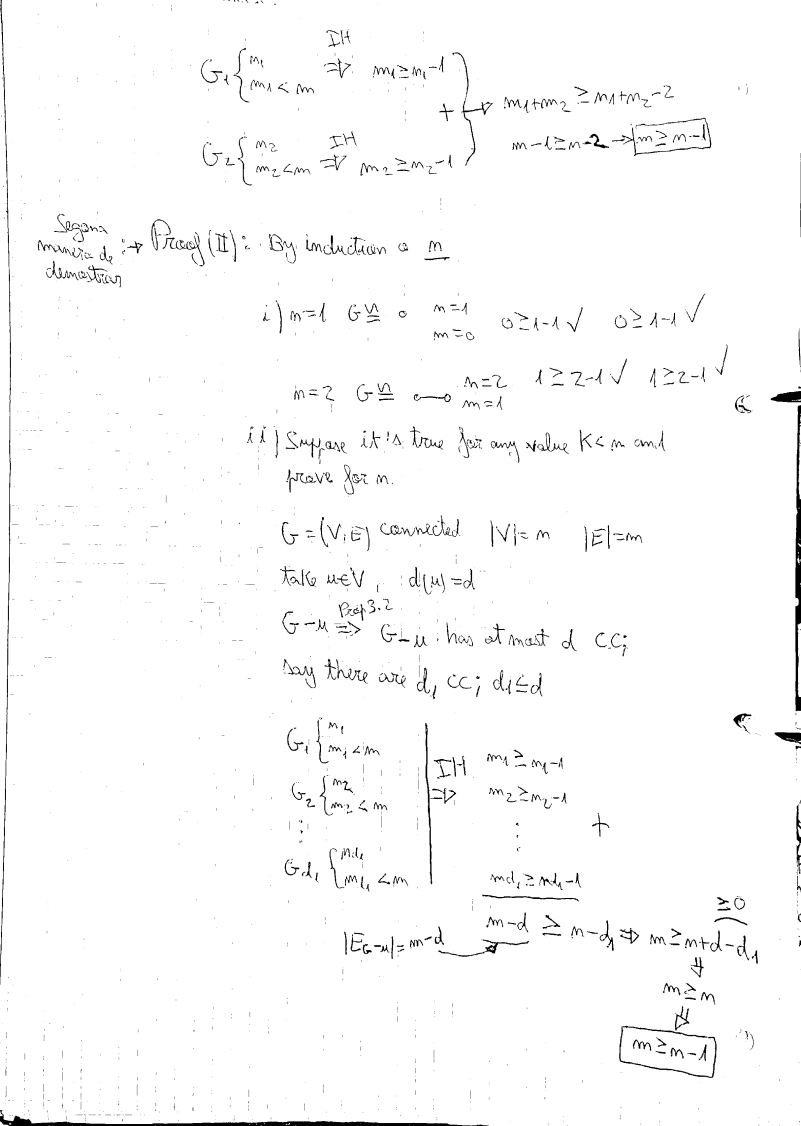 G₁ { n₁ IH
m₁ < m ⇒ m₁ ≥ n₁-1
+ → m₁+m₂ ≥ n₁+n₂-2
G₂ { n₂ IH m-1 ≥ n-2 → m ≥ n-1
m₂ < m ⇒ m₂ ≥ n₂-1
Segona
manera de
demostrar
:→ Proof (II): By induction o n
i) n=1 G ≅ o n=1 m=0 0≥1-1 ✓ 0≥1-1 ✓
n=2 G ≅ o—o n=2 m=1 1≥2-1 ✓ 1≥2-1 ✓
ii) Suppose it's true for any value K< n and
prove for n.
G=(V,E) connected |V|= n |E|=m
take u∈V, d(u)=d
G-u ⇒ Prop 3.2 G-u has at most d CC;
say there are d₁ CC; d₁≤d
G₁ { n₁
m₁ < m IH m₁ ≥ n₁-1
G₂ { n₂ ⇒ m₂ ≥ n₂-1
m₂ < m
⋮ ⋮ +
Gd₁ { nd₁
md₁ < m md₁ ≥ nd₁-1
≥0
|E_G-u|= m-d m-d ≥ n-d₁ ⇒ m≥n+d-d₁
⇓
m≥n
⇓
m≥n-1